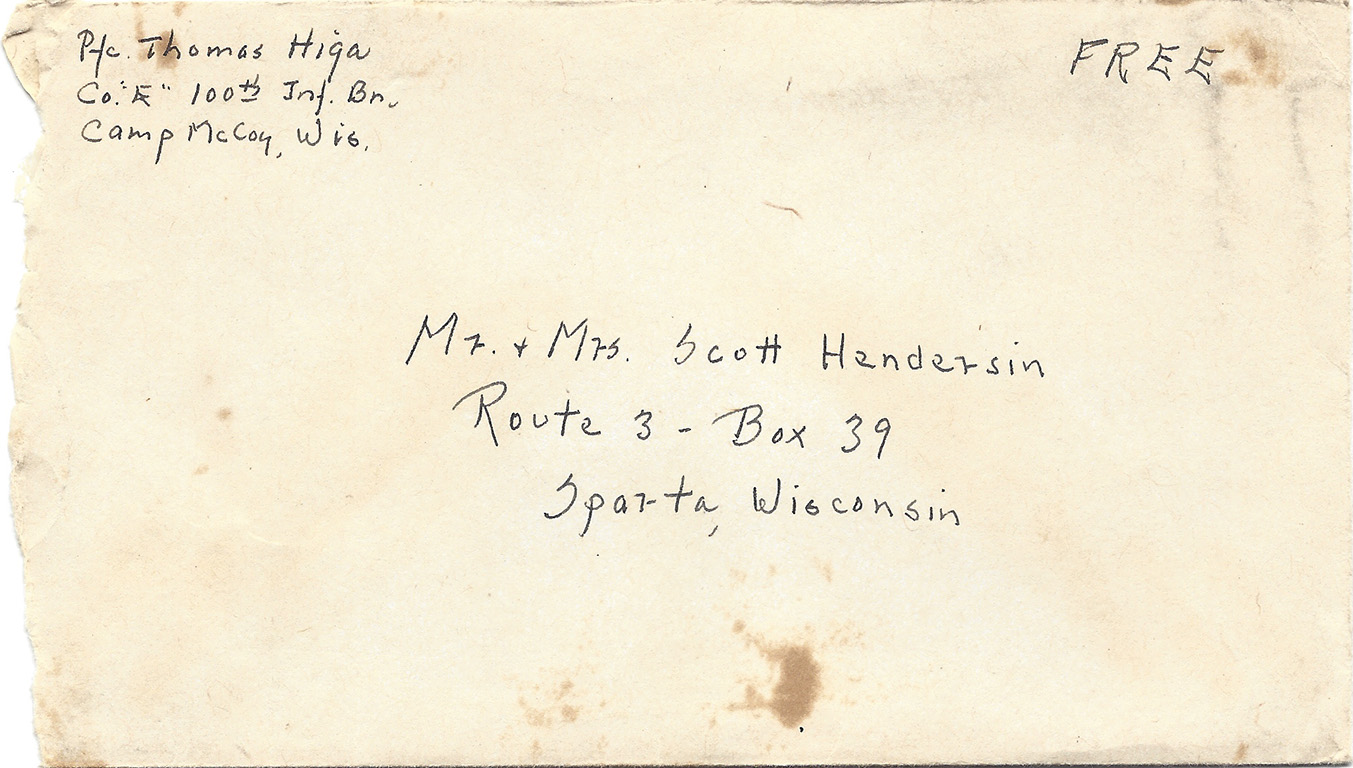 Pfc. Thomas Higa
Co. "E" 100th Inf. Bn.
Camp McCoy, Wis.
FREE
Mr. + Mrs. Scott Hendersin
Route 3 - Box 39
Sparta, Wisconsin